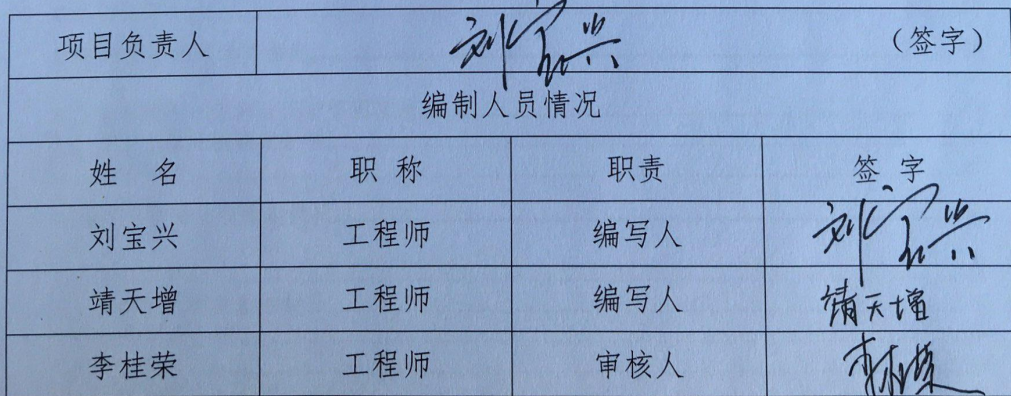 项目负责人 刘宝兴 （签字）
编制人员情况
姓 名 职 称 职责 签 字
刘宝兴 工程师 编写人 刘宝兴
靖天增 工程师 编写人 靖天增
李桂荣 工程师 审核人 李桂荣